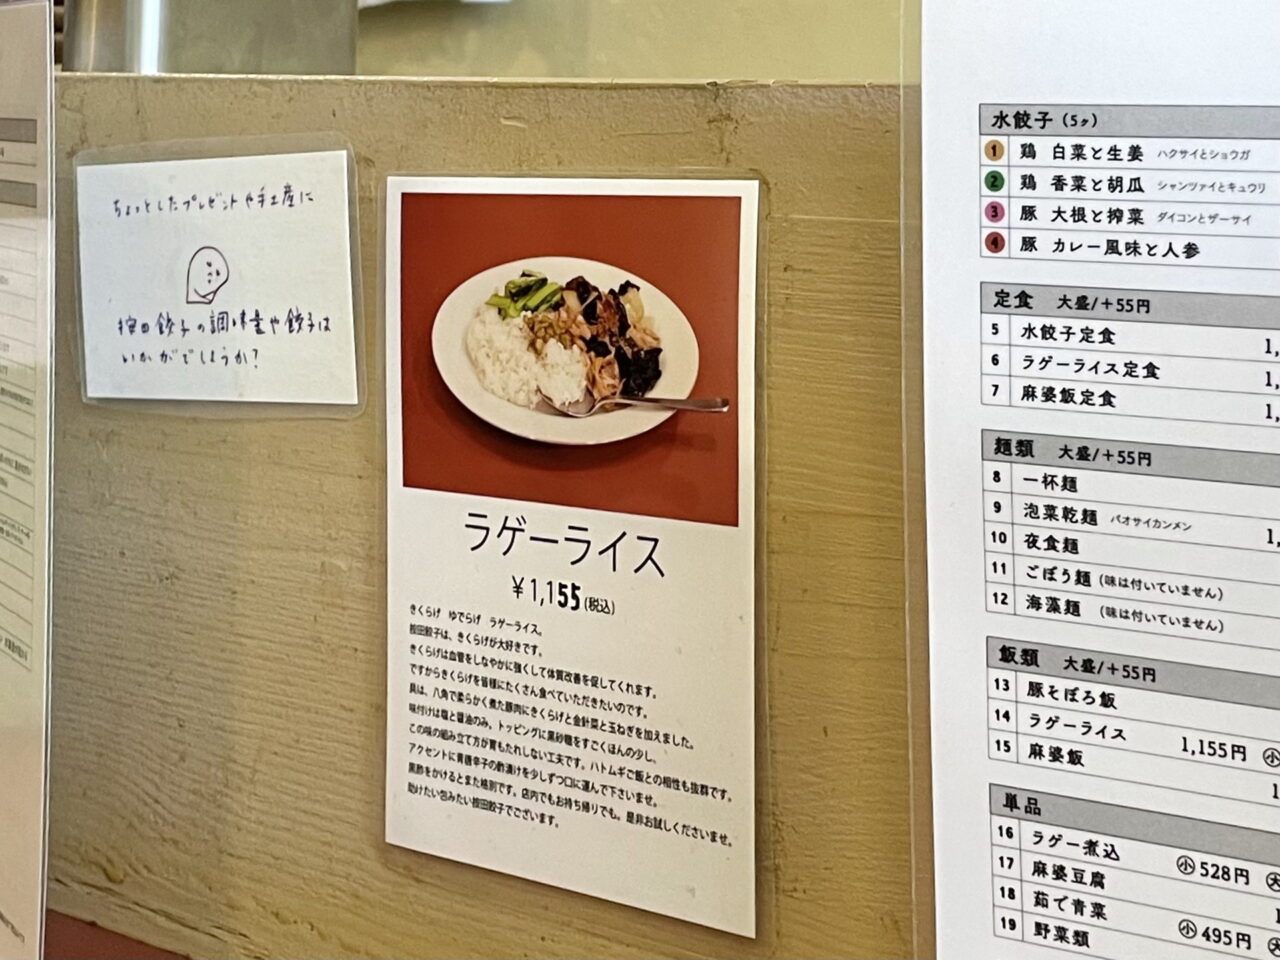 ちょっとしたプレゼントや手土産に
按田餃子の調味量や餃子は
いかがでしょうか?
ラゲーライス
¥1,155(税込)
きくらげ ゆでらげ ラゲーライス。
按田餃子は、きくらげが大好きです。
きくらげは血管をしなやかに強くして体質改善を促してくれます。
ですからきくらげを皆様にたくさん食べていただきたいのです。
具は、八角で柔らかく煮た豚肉にきくらげと金針菜と玉ねぎを加えました。
味付けは塩と醤油のみ。トッピングに黒砂糖をすごくほんの少し。
この味の組み立て方が胃もたれしない工夫です。ハトムギご飯との相性も抜群です。
アクセントに青唐辛子の酢漬けを少しずつ口に運んで下さいませ。
黒酢をかけるとまた格別です。店内でもお持ち帰りでも。是非お試しくださいませ。
助けたい包みたい按田餃子でございます。
水餃子(5ヶ)
1 鶏 白菜と生姜 ハクサイとショウガ
2 鶏 香菜と胡瓜 シャンツァイとキュウリ
3 豚 大根と搾菜 ダイコンとザーサイ
4 豚 カレー風味と人参
定食 大盛/+55円
5 水餃子定食 1,
6 ラゲーライス定食 1,
7 麻婆飯定食 1,
麺類 大盛/+55円
8 一杯麺
9 泡菜乾麺 パオサイカンメン 1,
10 夜食麺
11 ごぼう麺(味は付いていません)
12 海藻麺 (味は付いていません)
飯類 大盛/+55円
13 豚そぼろ飯
14 ラゲーライス 1,155円 小
15 麻婆飯 1
単品
16 ラゲー煮込 小528円 大
17 麻婆豆腐 1
18 茹で青菜 小495円 大
19 野菜類